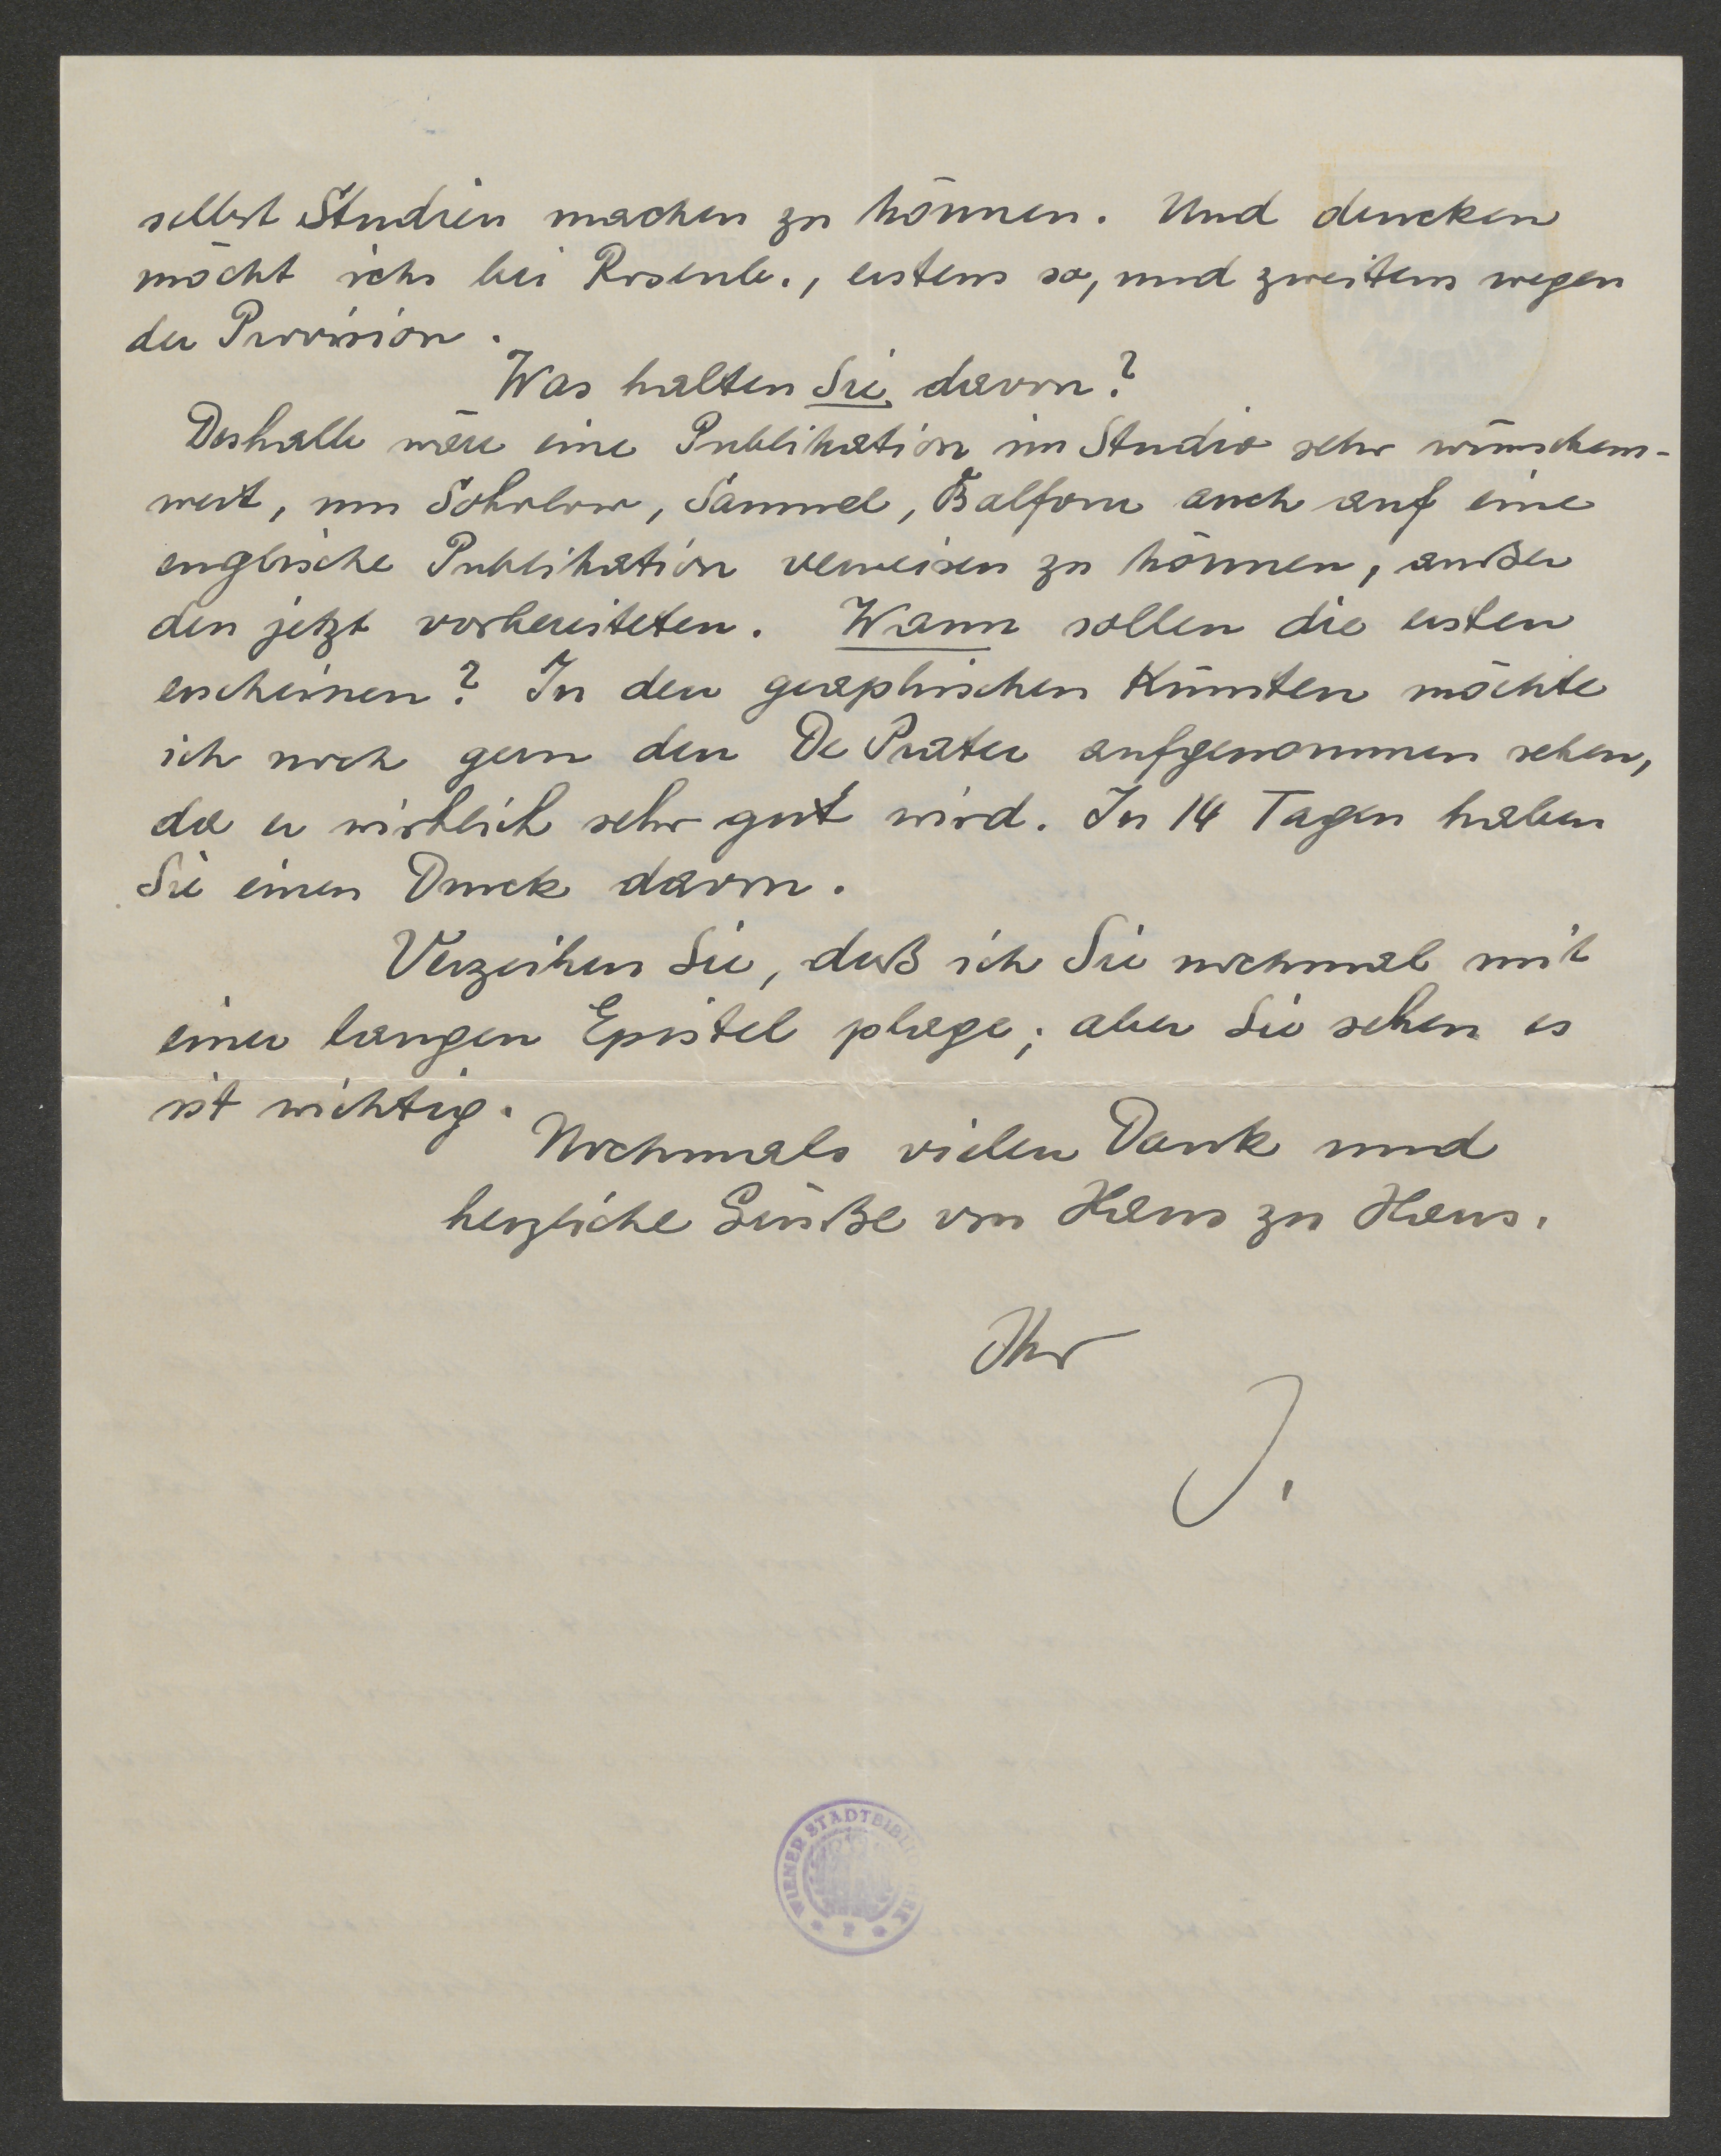 selbst Studien machen zu können. Und drucken
möcht ichs bei Rosenb., erstens so, und zweitens wegen
der Provision.
Was halten Sie davon?
Deshalb wäre eine Publikation im Studio sehr wünschens-
wert, um Sokolow, Samuel, Balfour auch auf eine
englische Publikation verweisen zu können, außer
den jetzt vorbereiteten. Wann sollen die ersten
erscheinen? In den graphischen Künsten möchte
ich noch gern den De Prater aufgenommen sehen,
da er wirklich sehr gut wird. In 14 Tagen haben
Sie einen Druck davon.
Verzeihen Sie, daß ich Sie nochmal mit
einer langen Epistel plage; aber Sie sehen es
ist wichtig.
Nochmals vielen Dank und
herzliche Grüße von Haus zu Haus.
Ihr
J.
WIENER STADTBIBLIOTHEK